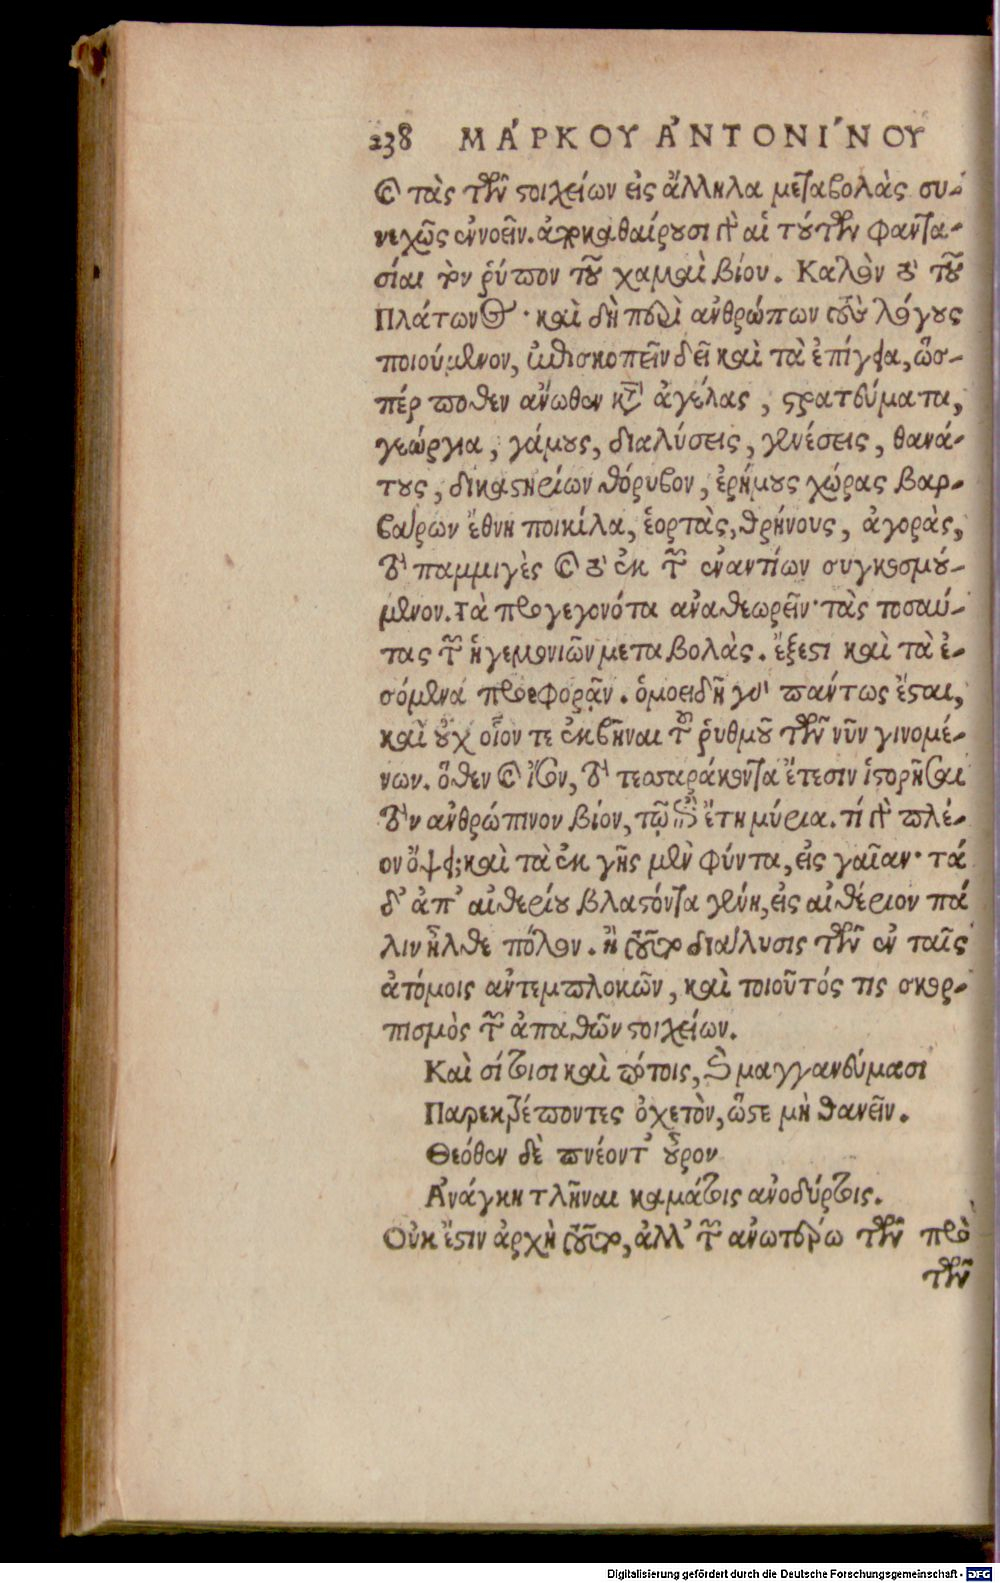 238 ΜΆΡΚΟΥ ἈΝΤΟΝΊΝΟΥ
καὶ τὰς τῶν στοιχείων εἰς ἄλληλα μεταβολὰς συ-
νεχῶς ἐννοεῖν. ἀποκαθαίρουσι γὰρ αἱ τούτων φαντα-
σίαι τὸν ῥύπον τοῦ χαμαὶ βίου. Καλὸν τὸ τοῦ
Πλάτωνος· καὶ δὴ περὶ ἀνθρώπων τοὺς λόγους
ποιούμενον, ἐπισκοπεῖν δεῖ καὶ τὰ ἐπίγεια, ὥσ-
πέρ ποθεν ἄνωθεν κατὰ ἀγέλας, στρατεύματα,
γεώργια, γάμους, διαλύσεις, γενέσεις, θανά-
τους, δικαστηρίων θόρυβον, ἐρήμους χώρας βαρ-
βάρων ἔθνη ποικίλα, ἑορτὰς, θρήνους, ἀγορὰς,
τὸ παμμιγὲς καὶ τὸ ἐκ τῶν ἐναντίων συγκοσμού-
μενον. Τὰ προγεγονότα ἀναθεωρεῖν· τὰς τοσαύ-
τας τῶν ἡγεμονιῶν μεταβολὰς. ἔξεστι καὶ τὰ ἐ-
σόμενα προεφορᾷν. ὁμοειδῆ γὰρ πάντως ἔσται,
καὶ οὐχ οἷόν τε ἐκβῆναι τοῦ ῥυθμοῦ τῶν νῦν γινομέ-
νων. ὅθεν καὶ ἴσον, τὸ τεσσαράκοντα ἔτεσιν ἱστορῆσαι
τὸν ἀνθρώπινον βίον, τῷ ἐπὶ ἔτη μύρια. τί γὰρ πλέ-
ον ὄψει; καὶ τὰ ἐκ γῆς μὲν φύντα, εἰς γαῖαν· τά
δ᾽ ἀπ᾽ αἰθερίου βλαστόντα γένη, εἰς αἰθέριον πά
λιν ἦλθε πόλον. ἢ τοῦτο διάλυσις τῶν ἐν ταῖς
ἀτόμοις ἀντεμπλοκῶν, καὶ τοιοῦτός τις σκορ-
πισμὸς τῶν ἀπαθῶν στοιχείων.
Καὶ σίτοισι καὶ ποτοῖς, καὶ μαγγανεύμασι
Παρεκτρέποντες ὀχετὸν, ὥστε μὴ θανεῖν.
Θεόθεν δὲ πνέοντ᾽ οὖρον
Ἀνάγκη τλῆναι καμάτοις ἀνοδύρτοις.
Οὐκ ἔστιν ἀρχὴ τοῦτο, ἀλλ᾽ τῶν ἀνωτέρω τῶν πρὸ
τῶν
Digitalisierung gefördert durch die Deutsche Forschungsgemeinschaft - DFG